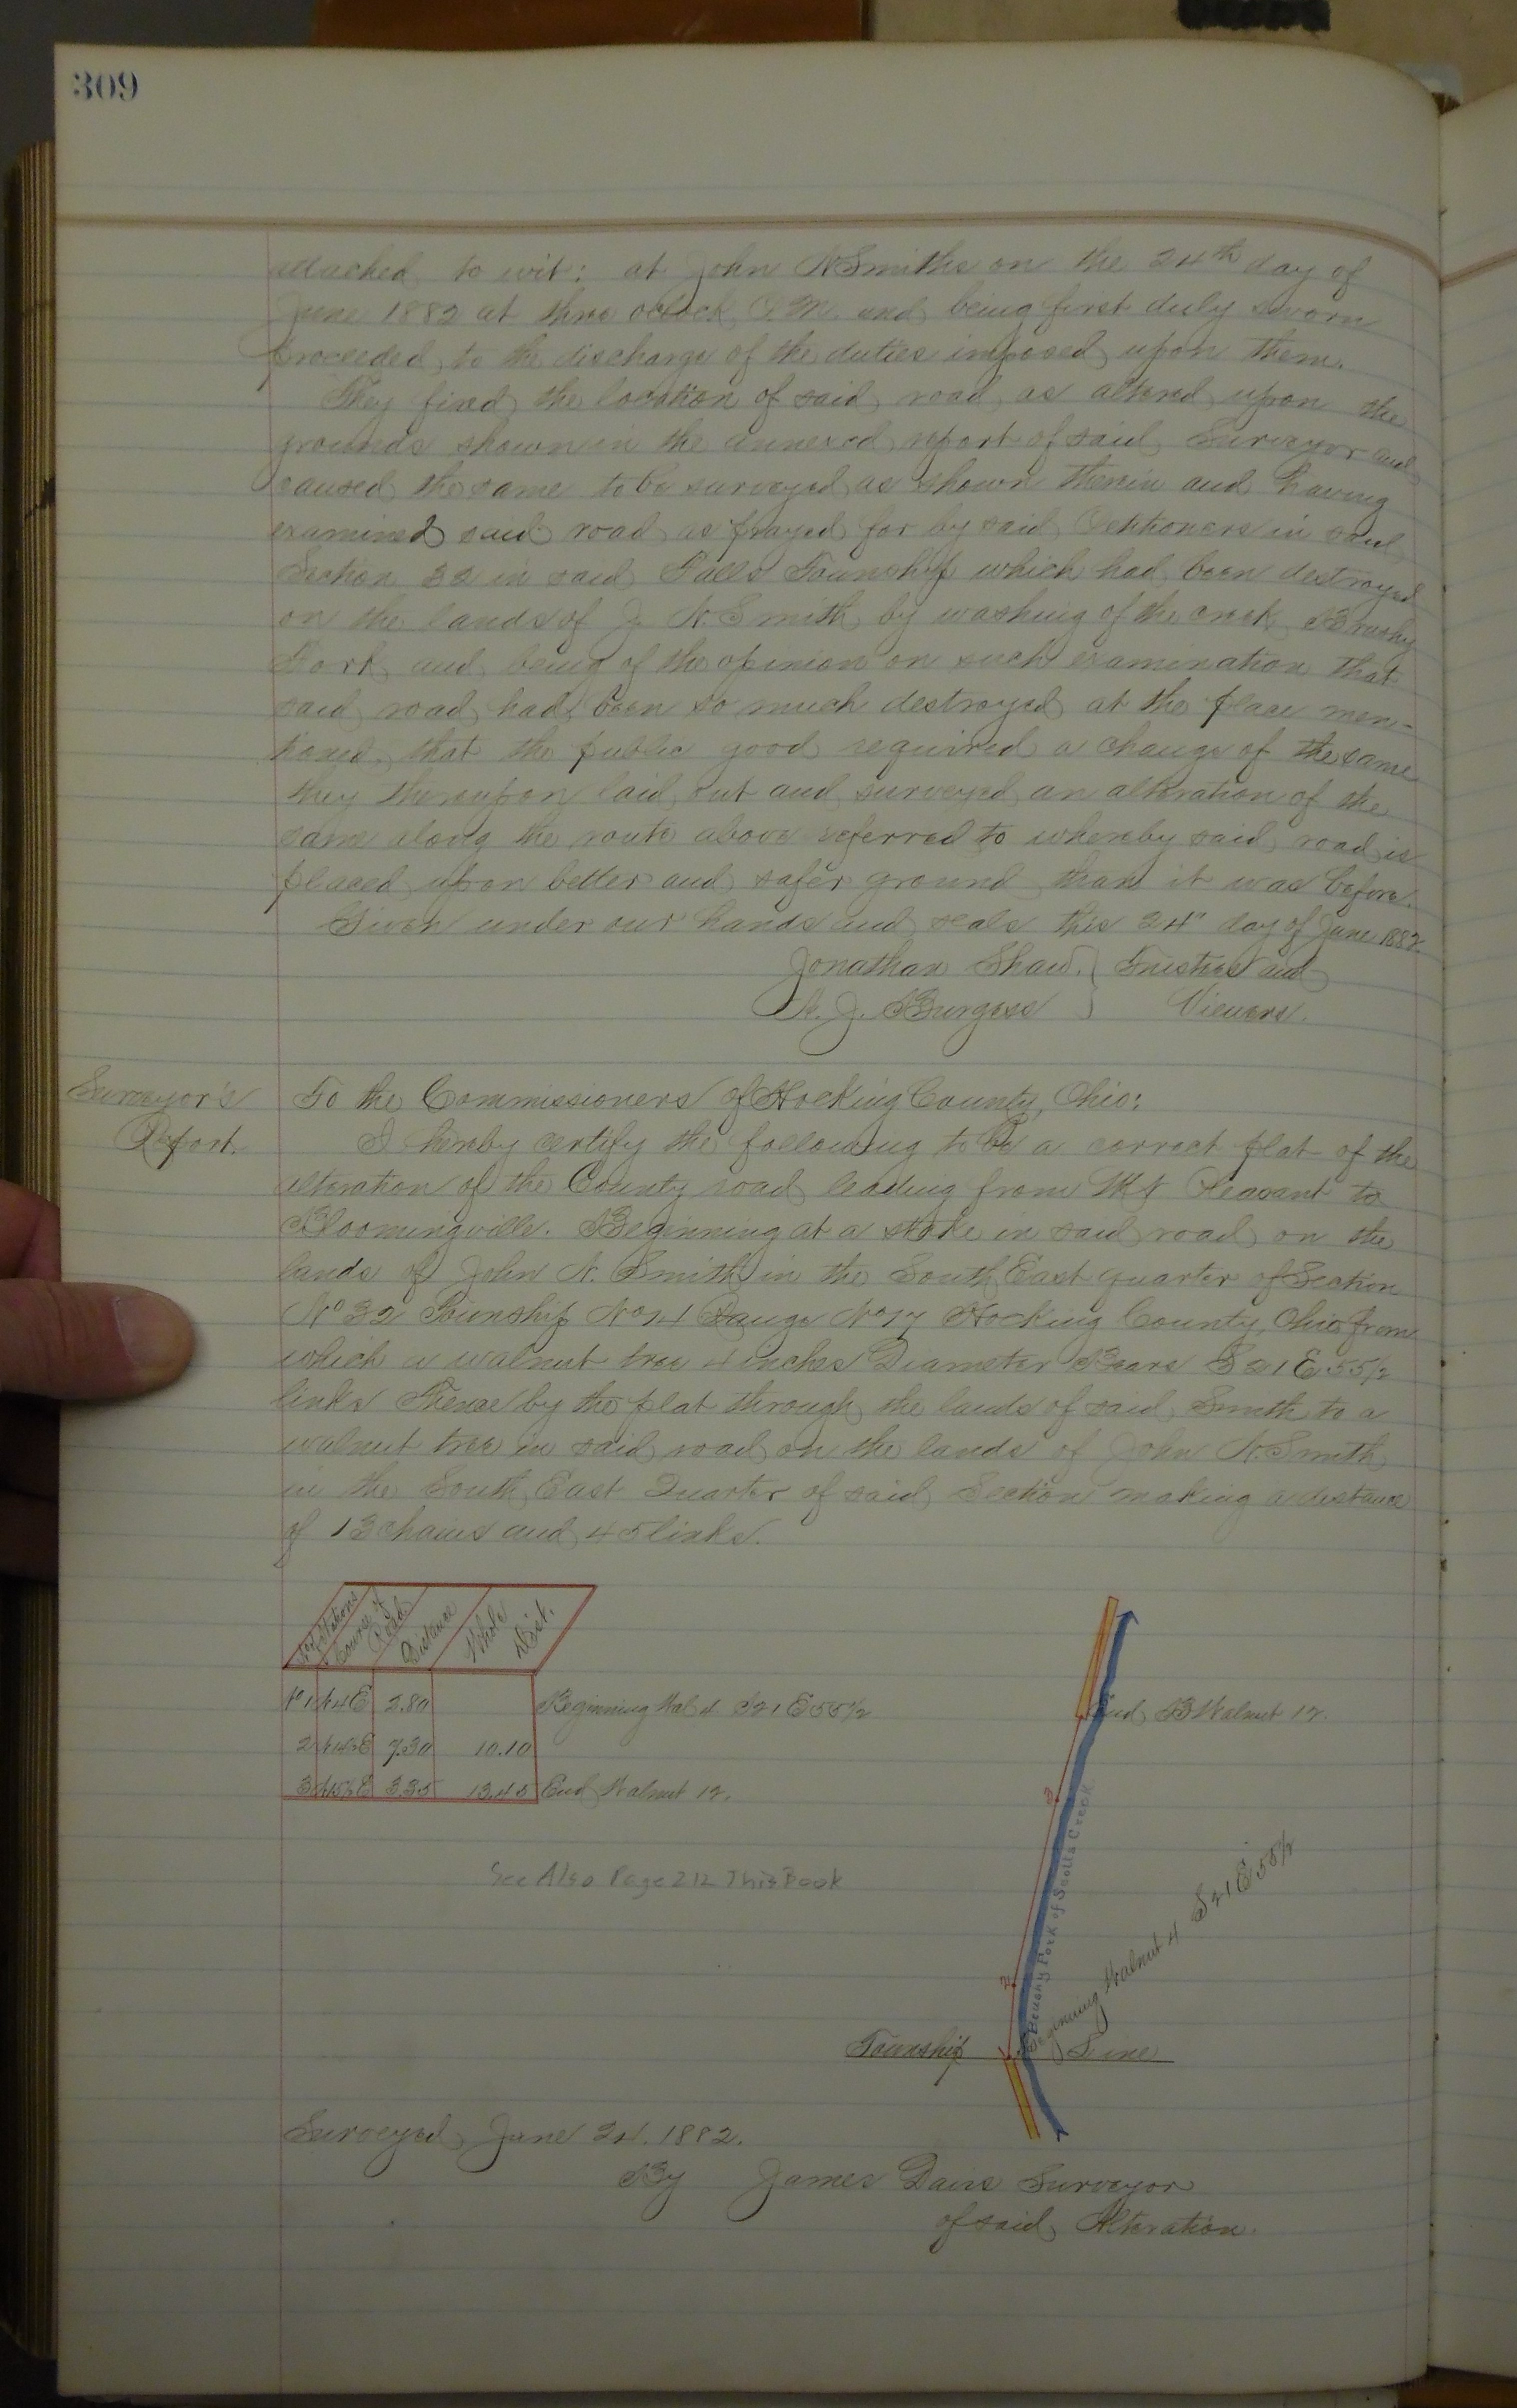 309
attached to wit: at John N Smiths on the 24th day of
June 1882 at three oclock P.M. and being first duly sworn
proceeded to the discharge of the duties imposed upon them.
They fixed the location of said road as altered upon the
grounds shown in the annexed report of said Surveyor and
caused the same to be surveyed as shown therein and having
examined said road as prayed for by said Petitioners in said
Section 32 in said Falls Township which had been destroyed
on the lands of J. N. Smith by washing of the creek Brushy
Fork and being of the opinion on such examination that
said road had been so much destroyed at the place men-
tioned, that the public good required a change of the same
they thereupon laid out and surveyed an alteration of the
same along the route above referred to whereby said road is
placed upon better and safer ground than it was before.
Given under our hands and seals this 24" day of June 1882.
Jonathan Shaw. } Trustees and
A. J. Burgess } Viewers.
Surveyor's
Report.
To the Commissioners of Hocking County, Ohio:
I hereby certify the following to be a correct plat of the
alteration of the County road leading from Mt Pleasant to
Bloomingville. Beginning at a stake in said road on the
lands of John N. Smith in the South East quarter of Section
No 32 Township No 14 Range No 17 Hocking County, Ohio from
which a walnut tree 4 inches Diameter Bears S 21 E 55½
links Thence by the plat through the lands of said Smith to a
walnut tree in said road on the lands of John N. Smith
in the South East Quarter of said Section making a distance
of 13 chains and 45 links.
No of Stations Course of Road Distance Whole Dist.
No 1 N4E 2.80 Beginning Wal 4. S21E55½
2 N14½E 7.30 10.10
3 N15½E 3.35 13.45 End Walnut 12.
End B Walnut 12.
3
See Also Page 212 This Book
Brushy Fork of Scotts Creek
Beginning Walnut 4 S21E55½
2
1
Township Line
Surveyed June 24. 1882.
By James Davis Surveyor
of said Alteration.